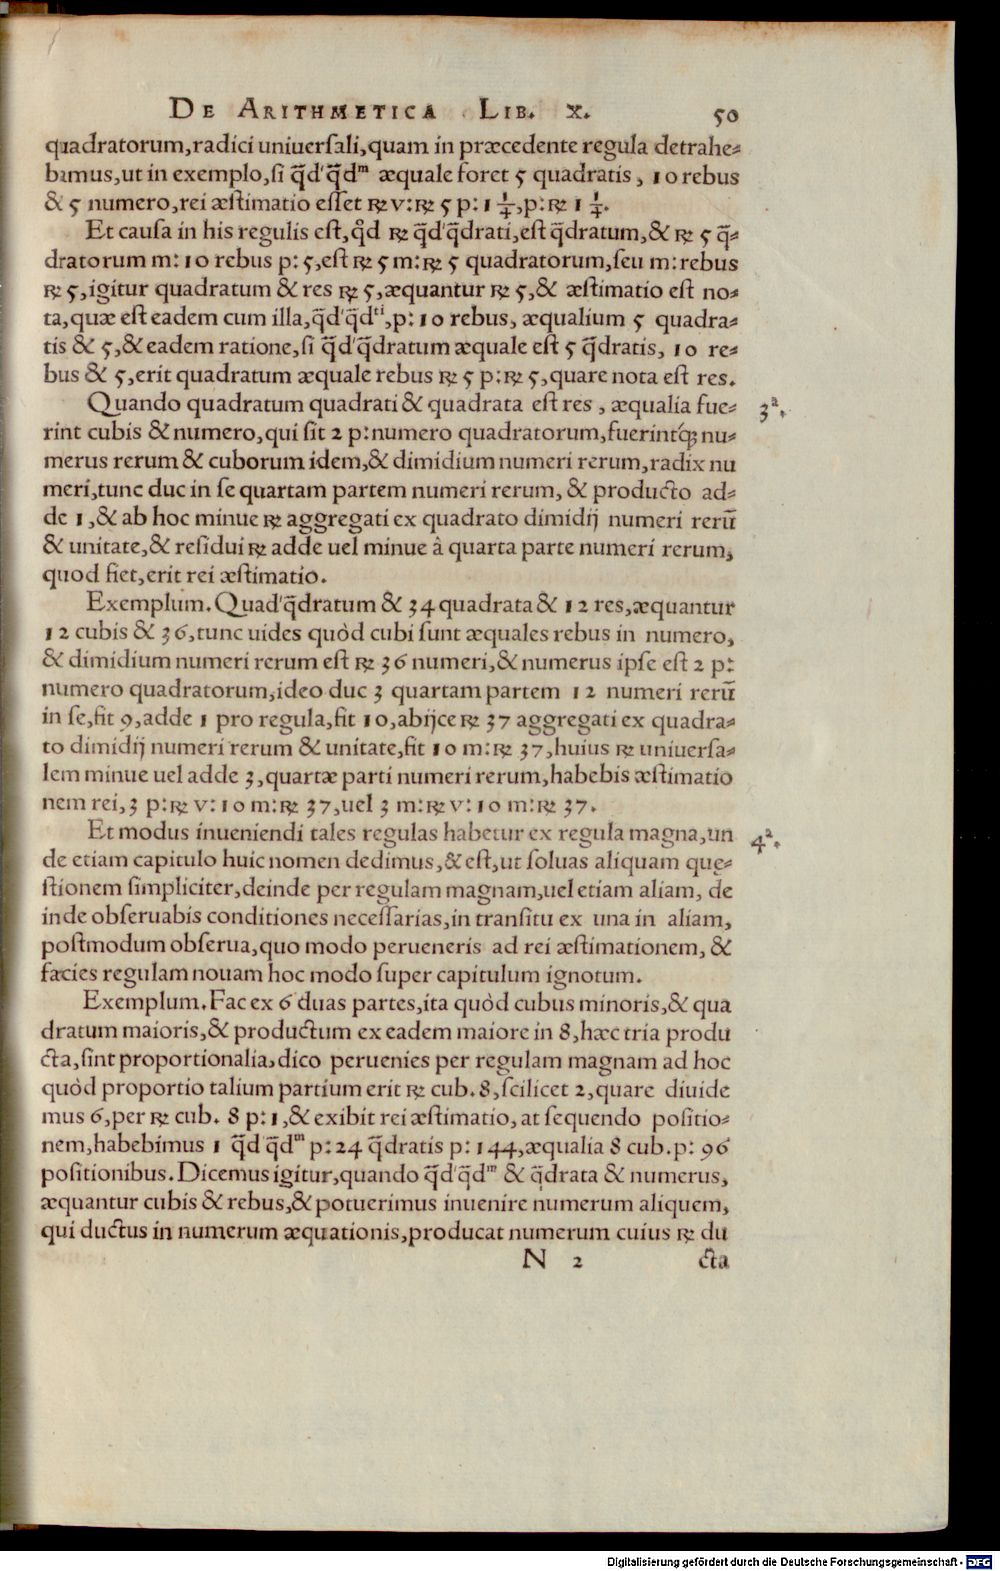 DE ARITHMETICA LIB. X. 50
quadratorum, radici uniuerſali, quam in præcedente regula detrahe-
bimus, ut in exemplo, ſi q̃d' q̃dᵐ æquale foret 5 quadratis, 10 rebus
& 5 numero, rei æſtimatio eſſet ℞ v: ℞ 5 p: 1 1/4, p: ℞ 1 1/4.
Et cauſa in his regulis eſt, qd̃ ℞ q̃d' q̃drati, eſt q̃dratum, & ℞ 5 q̃-
dratorum m: 10 rebus p: 5, eſt ℞ 5 m: ℞ 5 quadratorum, ſeu m: rebus
℞ 5, igitur quadratum & res ℞ 5, æquantur ℞ 5, & æſtimatio eſt no-
ta, quæ eſt eadem cum illa, q̃d' q̃dᵗⁱ, p: 10 rebus, æqualium 5 quadra-
tis & 5, & eadem ratione, ſi q̃d' q̃dratum æquale eſt 5 q̃dratis, 10 re-
bus & 5, erit quadratum æquale rebus ℞ 5 p: ℞ 5, quare nota eſt res.
Quando quadratum quadrati & quadrata eſt res, æqualia fue- 3ª.
rint cubis & numero, qui ſit 2 p: numero quadratorum, fuerintq́; nu-
merus rerum & cuborum idem, & dimidium numeri rerum, radix nu
meri, tunc duc in ſe quartam partem numeri rerum, & producto ad-
de 1, & ab hoc minue ℞ aggregati ex quadrato dimidij numeri rerũ
& unitate, & reſidui ℞ adde uel minue à quarta parte numeri rerum,
quod fiet, erit rei æſtimatio.
Exemplum. Quad' q̃dratum & 34 quadrata & 12 res, æquantur
12 cubis & 36, tunc uides quòd cubi ſunt æquales rebus in numero,
& dimidium numeri rerum eſt ℞ 36 numeri, & numerus ipſe eſt 2 p:
numero quadratorum, ideo duc 3 quartam partem 12 numeri rerũ
in ſe, fit 9, adde 1 pro regula, fit 10, abijce ℞ 37 aggregati ex quadra-
to dimidij numeri rerum & unitate, fit 10 m: ℞ 37, huius ℞ uniuerſa-
lem minue uel adde 3, quartæ parti numeri rerum, habebis æſtimatio
nem rei, 3 p: ℞ v: 10 m: ℞ 37, uel 3 m: ℞ v: 10 m: ℞ 37.
Et modus inueniendi tales regulas habetur ex regula magna, un 4ª.
de etiam capitulo huic nomen dedimus, & eſt, ut ſoluas aliquam quę-
ſtionem ſimpliciter, deinde per regulam magnam, uel etiam aliam, de
inde obſeruabis conditiones neceſſarias, in tranſitu ex una in aliam,
poſtmodum obſerua, quo modo perueneris ad rei æſtimationem, &
facies regulam nouam hoc modo ſuper capitulum ignotum.
Exemplum. Fac ex 6 duas partes, ita quòd cubus minoris, & qua
dratum maioris, & productum ex eadem maiore in 8, hæc tria produ
cta, ſint proportionalia, dico peruenies per regulam magnam ad hoc
quòd proportio talium partium erit ℞ cub. 8, ſcilicet 2, quare diuide
mus 6, per ℞ cub. 8 p: 1, & exibit rei æſtimatio, at ſequendo poſitio-
nem, habebimus 1 q̃d q̃dᵐ p: 24 q̃dratis p: 144, æqualia 8 cub. p: 96
poſitionibus. Dicemus igitur, quando q̃d' q̃dᵐ & q̃drata & numerus,
æquantur cubis & rebus, & potuerimus inuenire numerum aliquem,
qui ductus in numerum æquationis, producat numerum cuius ℞ du
N 2 cta
Digitalisierung gefördert durch die Deutsche Forschungsgemeinschaft - DFG